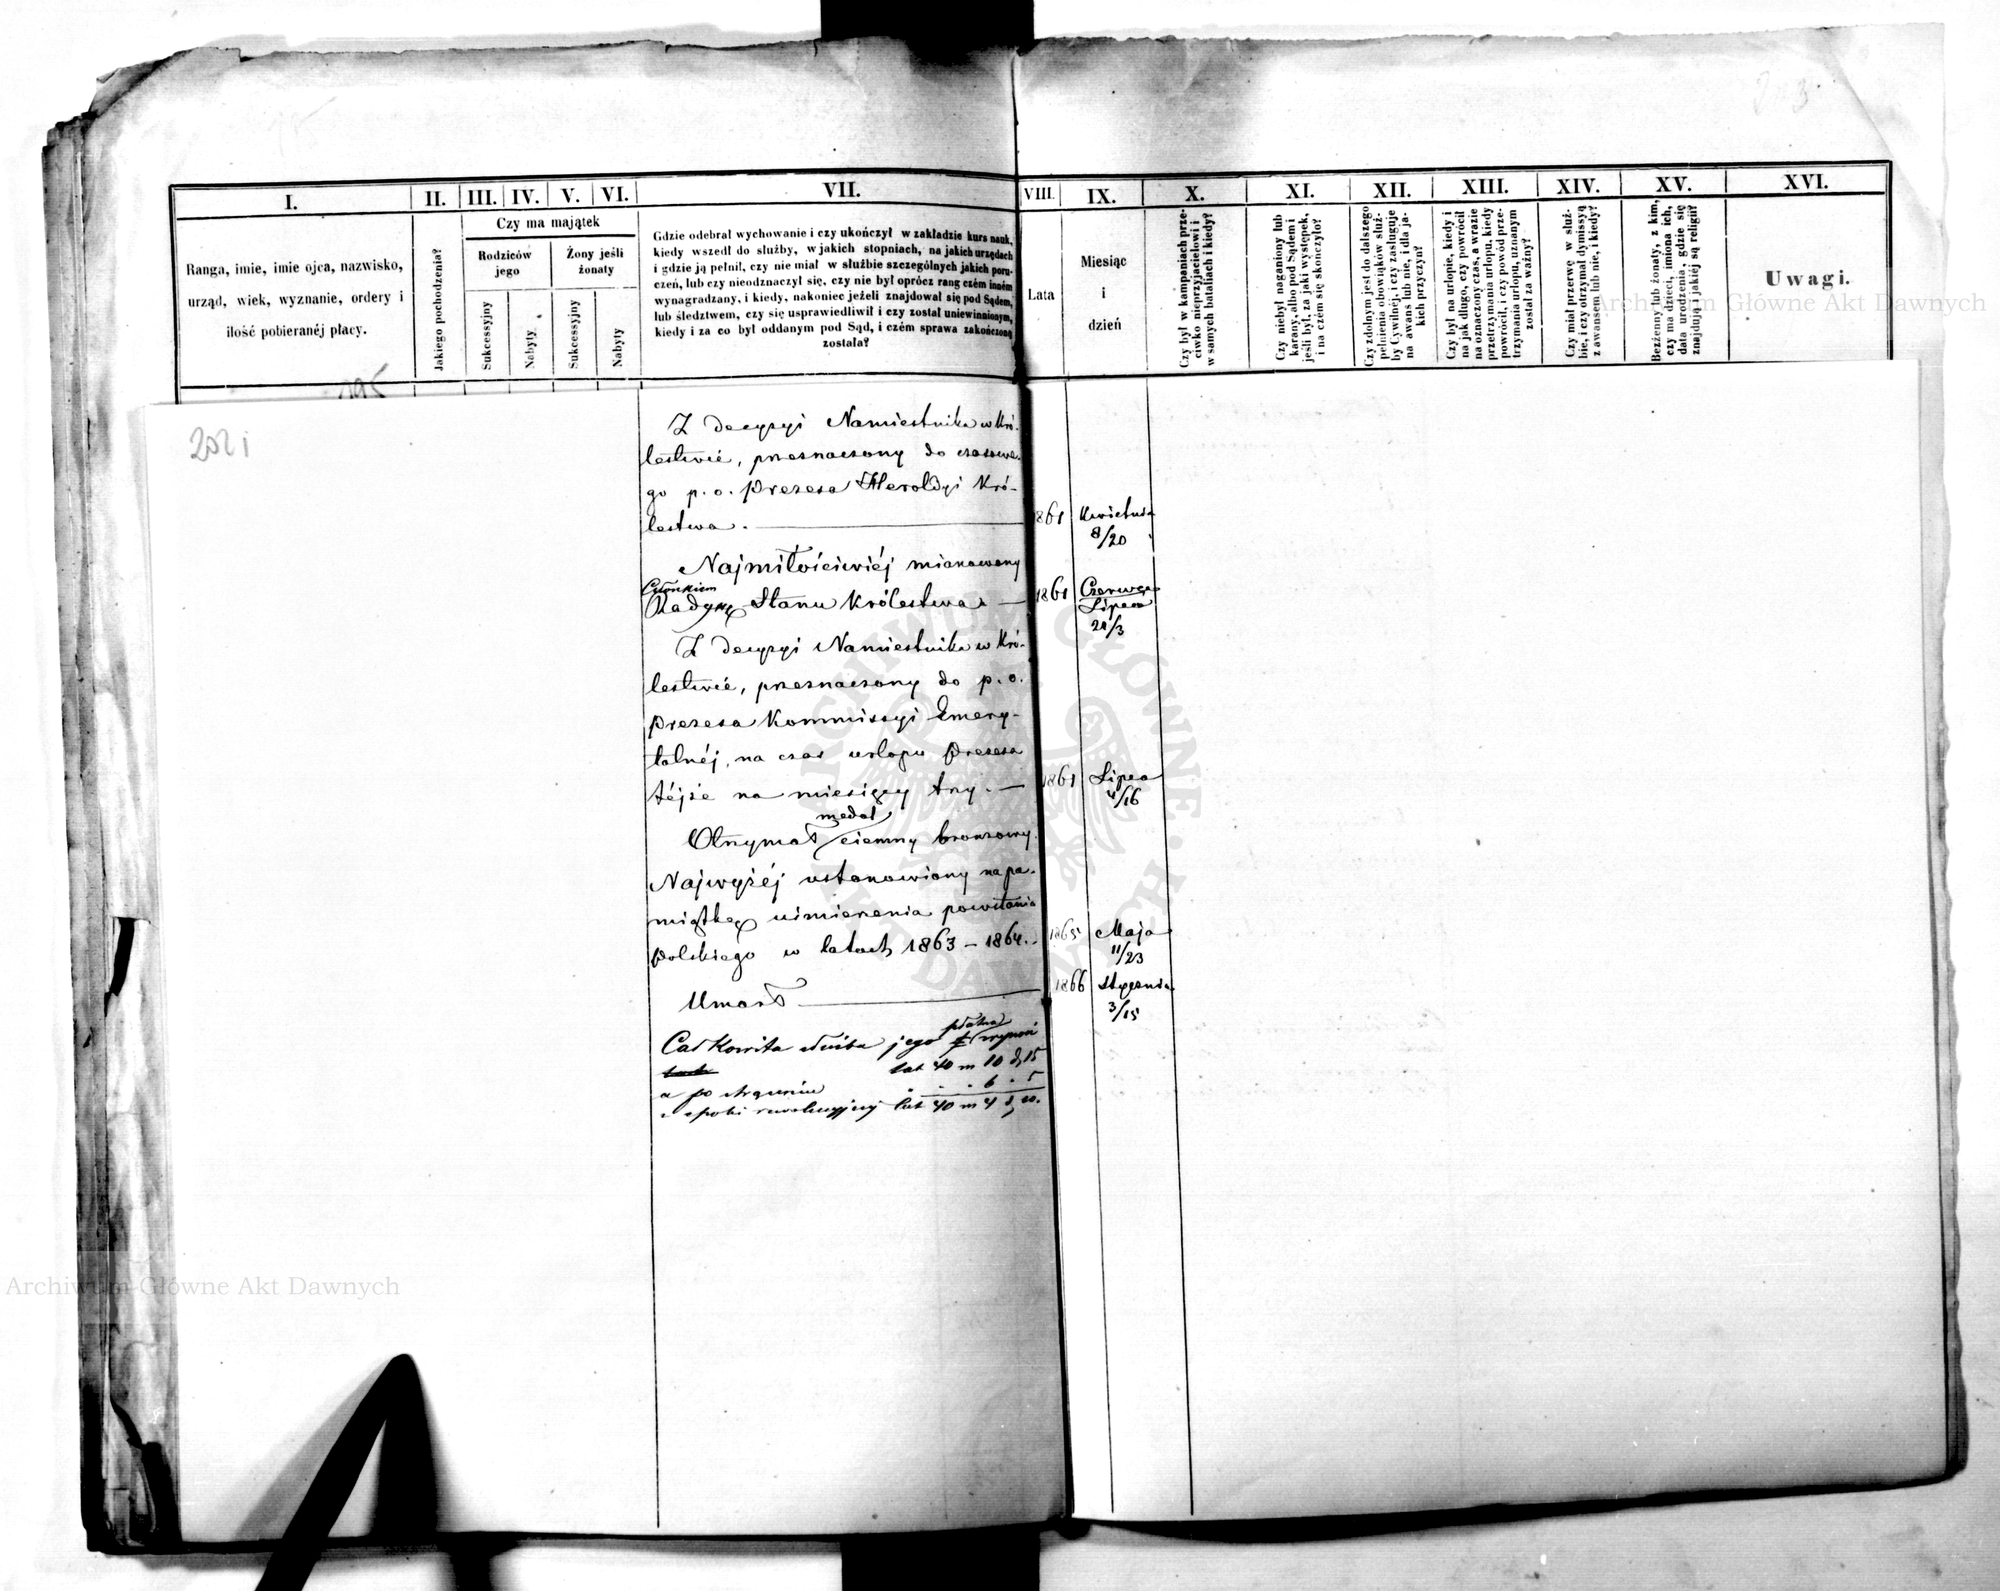 I.
II.
III.
IV.
V.
VI.
VII.
VIII.
IX.
X.
XI.
XII.
XIII.
XIV.
XV.
XVI.
Ranga, imie, imie ojca, nazwisko,
urząd, wiek, wyznanie, ordery i
ilość pobieranéj płacy.
Jakiego pochodzenia?
Czy ma majątek
Rodziców
jego
Żony jeśli
żonaty
Sukcessyjny
Nabyty
Sukcessyjny
Nabyty
Gdzie odebrał wychowanie i czy ukończył w zakładzie kurs nauk,
kiedy wszedł do służby, w jakich stopniach, na jakich urzędach
i gdzie ją pełnił, czy nie miał w służbie szczególnych jakich poru-
czeń, lub czy nieodznaczył się, czy nie był oprócz rang czém inném
wynagradzany, i kiedy, nakoniec jeżeli znajdował się pod Sądem,
lub śledztwem, czy się usprawiedliwił i czy został uniewinnionym,
kiedy i za co był oddanym pod Sąd, i czém sprawa zakończoną
została?
Lata
Miesiąc
i
dzień
Czy był w kampaniach prze-
ciwko nieprzyjacielowi i
w samych bataliach i kiedy?
Czy niebył naganiony lub
karany, albo pod Sądem i
jeśli był, za jaki występek,
i na czém się skończyło?
Czy zdolnym jest do dalszego
pełnienia obowiąków służ-
by Cywilnéj, i czy zasługuje
na awans lub nie, i dla ja-
kich przyczyn?
Czy był na urlopie, kiedy i
na jak długo, czy powrócił
na oznaczony czas, a wrazie
przetrzymania urlopu, kiedy
powrócił, i czy powód prze-
trzymania urlopu, uznanym
został za ważny?
Czy miał przerwę w służ-
bie, i czy otrzymał dymissyą
z awansem lub nie, i kiedy?
Bezżenny lub żonaty, z kim,
czy ma dzieci, imiona ich,
data urodzenia, gdzie się
znajdują i jakiéj są religii?
Uwagi.
Archiwum Główne Akt Dawnych
195
202
Z decyzyi Namiestnika w Kró-
lestwie, przeznaczony do czasowe-
go p. o. Prezesa Heroldyi Kró-
lestwa. 1861 Kwietnia
8/20
Najmiłościwiéj mianowany
Członkiem
Rady Stanu Królestwa 1861 Czerwca
Lipca
21/3
Z decyzyi Namiestnika w Kró-
lestwie, przeznaczony do p. o.
Prezesa Kommissyi Emery-
talnéj, na czas urlopu Prezesa
téjże na miesięcy trzy. 1861 Lipca
4/16
medal
Otrzymał ciemny bronzowy
Najwyżéj ustanowiony na pa-
miątkę uśmierzenia powstania
Polskiego w latach 1863 – 1864. 1865 Maja
11/23
Umarł 1866 Stycznia
3/15
płatna
Całkowita służba jego wynosi
lat 40 m 10 d 15
a po strąceniu 6 . 5
z epoki rewolucyjnej lat 40 m 4 d 10.
ARCHIWUM GŁÓWNE AKT DAWNYCH
Archiwum Główne Akt Dawnych